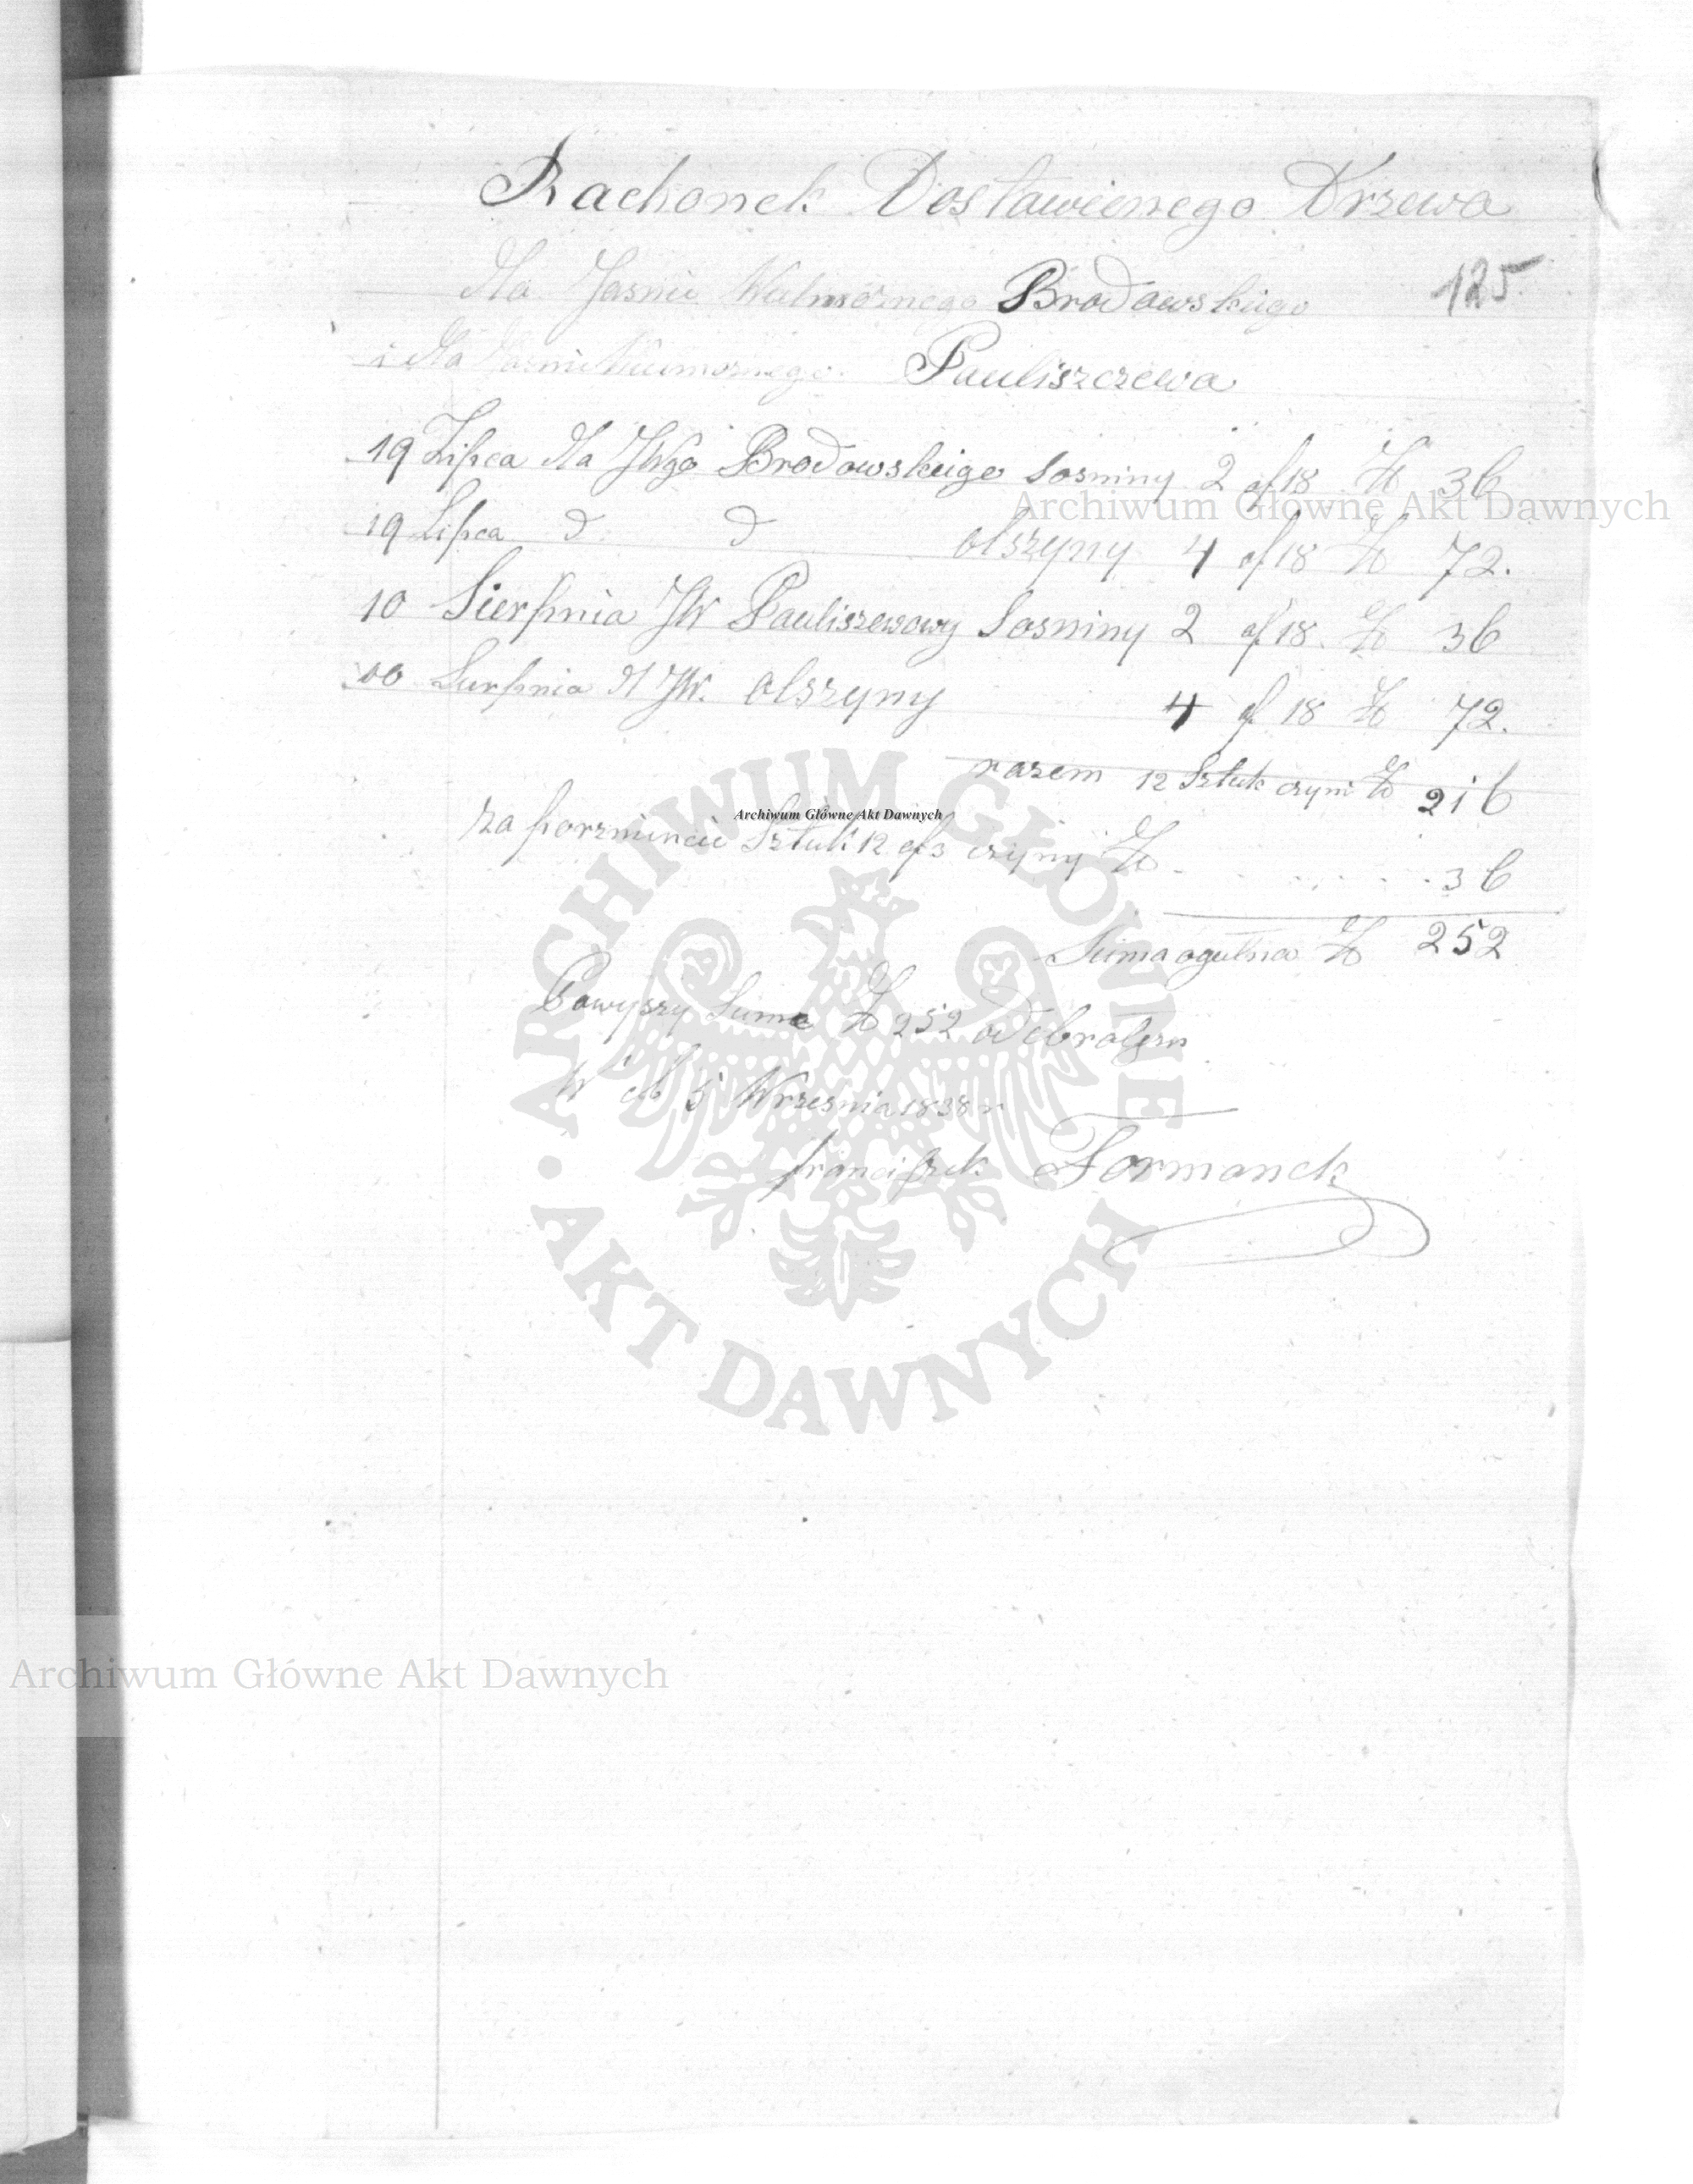 Rachonek Dostawienego Drzewa
dla Jasnie Wielmoznego Brodowskiego
125
i dla Jasnie Wielmoznego Pauliszczewa
19 Lipca dla JWgo Brodowskiego Sosniny 2 af 18 Zł 36
19 Lipca d d olszyny 4 af 18 Zł 72.
10 Sierpnia JW Pauliszewowy Sosniny 2 af 18 Zł 36
10 Sierpnia d JW. olszyny 4 af 18 Zł 72.
razem 12 Sztuk czyni Zł 216
za porznięcie Sztuk 12 af 3 czyny Zł 36
Suma ogulna Zł 252
Powyszy Sume Zł 252 odebrałem
W d 5 Wrzesnia 1838 r
Franciszek Formanek
Archiwum Główne Akt Dawnych
Archiwum Główne Akt Dawnych
ARCHIWUM GŁÓWNE
AKT DAWNYCH
Archiwum Główne Akt Dawnych